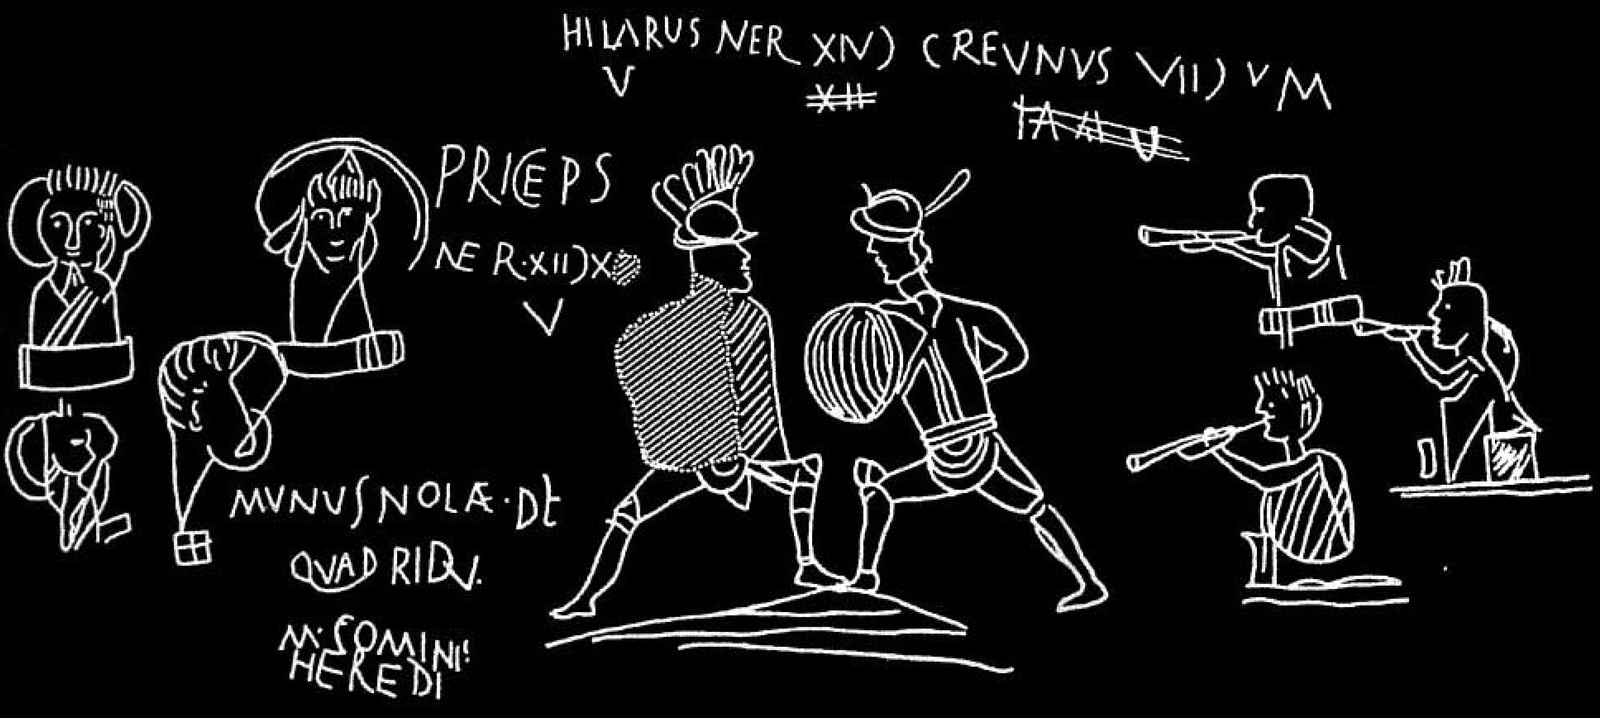 HILARUS NER XIV) CREUNUS VII) V M
V
XII
PRICEPS
NER·XII)X
V
MUNUS NOLÆ·DE
QUADRIDU.
M·COMINI
HEREDI